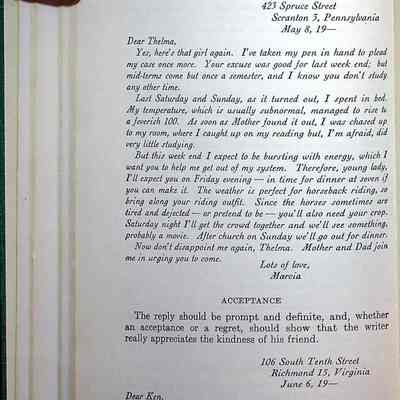 423 Spruce Street
Scranton 5, Pennsylvania
May 8, 19—
Dear Thelma,
Yes, here's that girl again. I've taken my pen in hand to plead
my case once more. Your excuse was good for last week end; but
mid-terms come but once a semester, and I know you don't study
any other time.
Last Saturday and Sunday, as it turned out, I spent in bed.
My temperature, which is usually subnormal, managed to rise to
a feverish 100. As soon as Mother found it out, I was chased up
to my room, where I caught up on my reading but, I'm afraid, did
very little studying.
But this week end I expect to be bursting with energy, which I
want you to help me get out of my system. Therefore, young lady,
I'll expect you on Friday evening — in time for dinner at seven if
you can make it. The weather is perfect for horseback riding, so
bring along your riding outfit. Since the horses sometimes are
tired and dejected — or pretend to be — you'll also need your crop.
Saturday night I'll get the crowd together and we'll see something,
probably a movie. After church on Sunday we'll go out for dinner.
Now don't disappoint me again, Thelma. Mother and Dad join
me in urging you to come.
Lots of love,
Marcia
ACCEPTANCE
The reply should be prompt and definite, and, whether
an acceptance or a regret, should show that the writer
really appreciates the kindness of his friend.
106 South Tenth Street
Richmond 15, Virginia
June 6, 19—
Dear Ken,